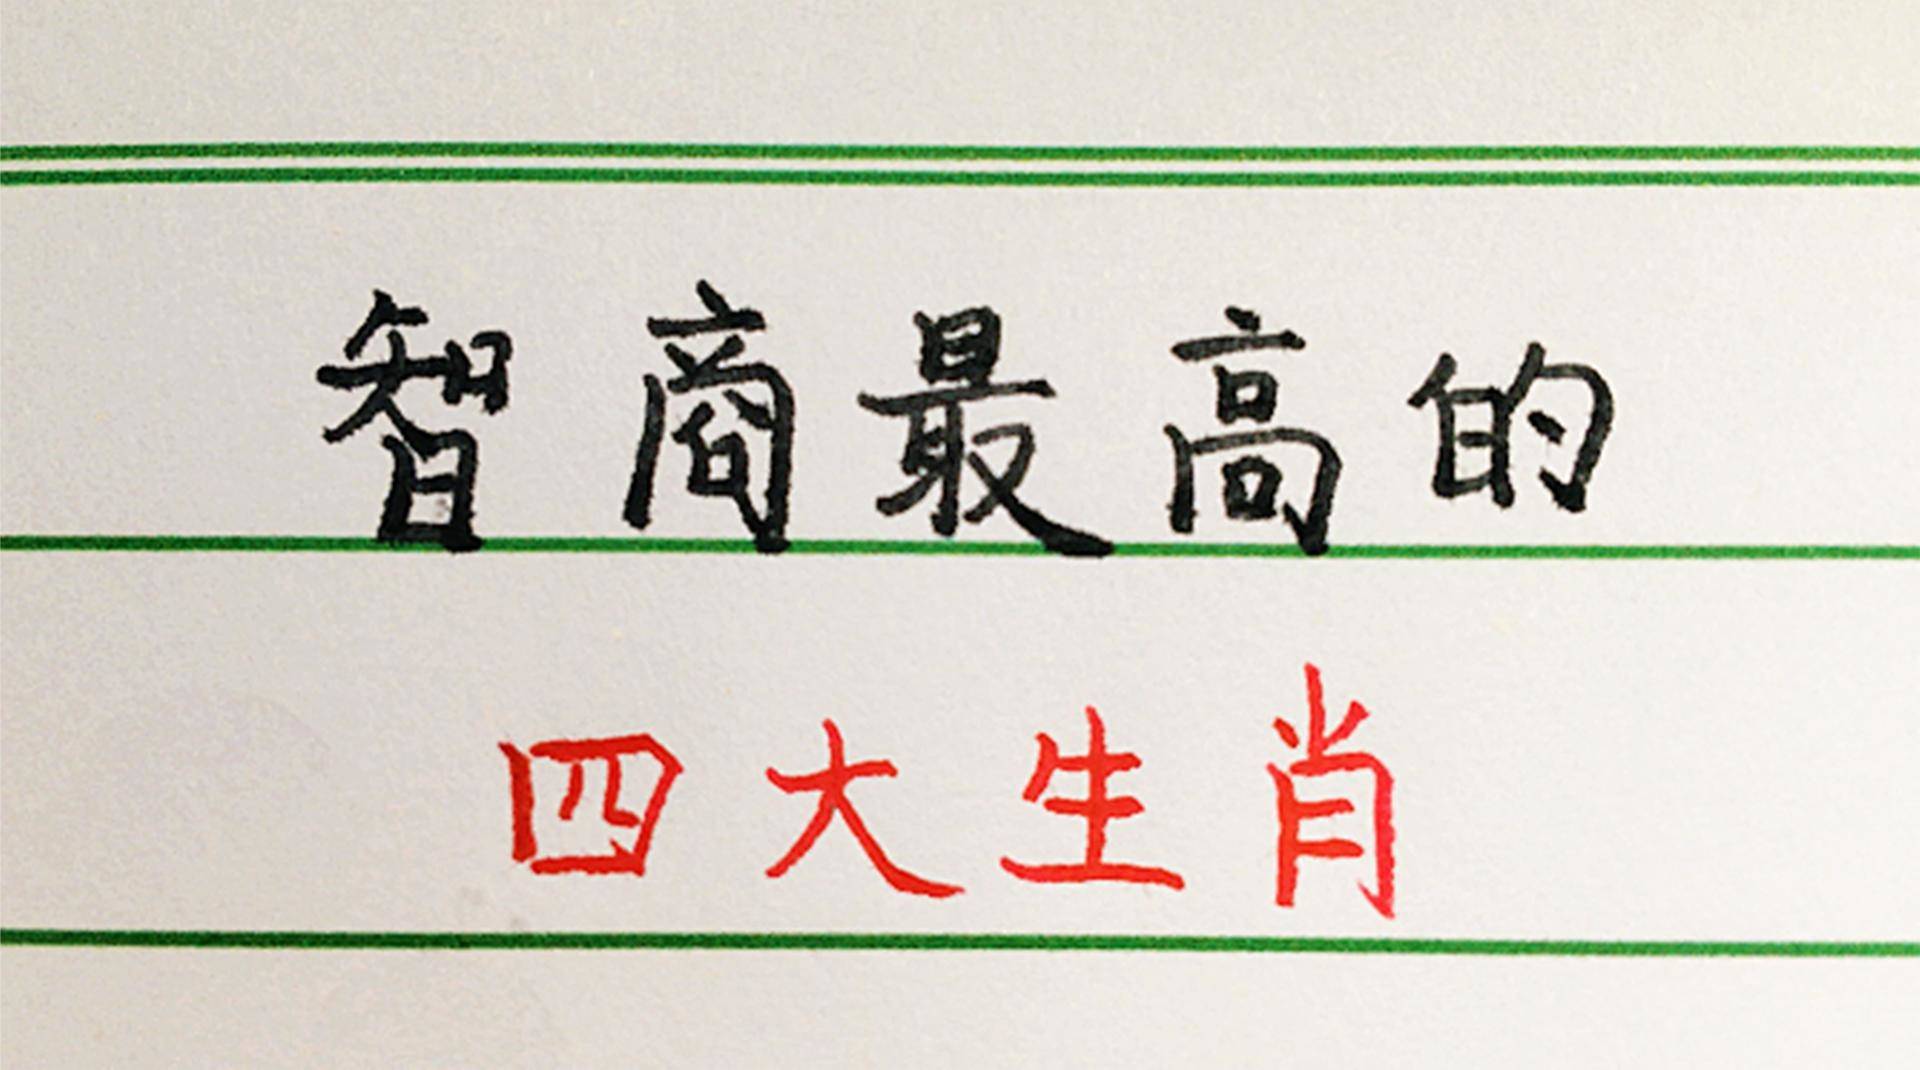 智商最高的
四大生肖